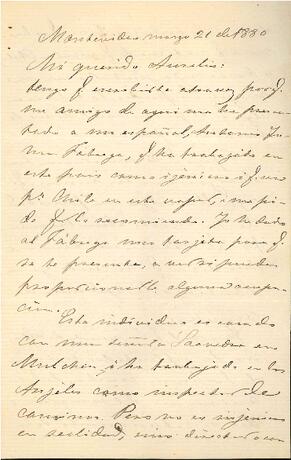 Montevideo marzo 21 de 1880
Mi querido Aurelio:
tengo q. escribirte ahora, porq.
un amigo de aqui me ha presen
tado a un español, Antonio
Fábrega, q. ha trabajado en
este pais como injeniero i q. va
pa. Chile en este vapor, i me pi
de q. lo recomiende. Yo he dado
al Fábrega una tarjeta para q.
se te presente, a ver si puedes
proporcionarle alguna ocupa
cion.
Este individuo es casado
con una señorita Saavedra en
Mulchen, i ha trabajado en los
Anjeles como inspector de
caminos. Pero no es injeniero
en realidad, sino director